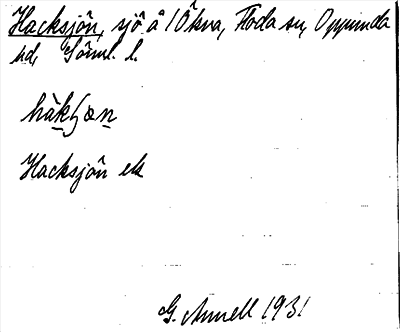 Hacksjön, sjö å /Ökna, Floda sn, Oppunda
hd, Söml. l.
Hacksjön ek
G. Annell 1931